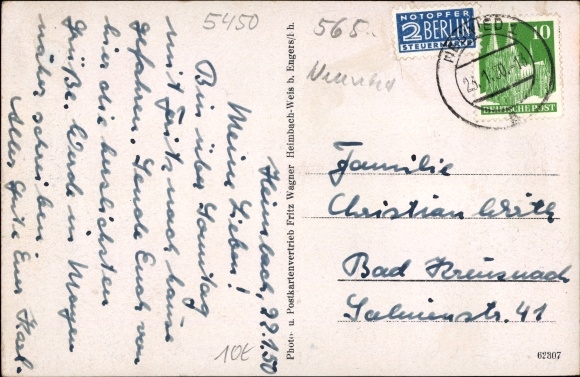 5450
565.
Neuwied
Heimbach, 22.1.50
Meine Lieben!
Bin über Sonntag
mit Fritz nach hause
gefahren. Sende Euch von
hier die herzlichsten
Grüße. Werde in Mayen
näher schreiben
Alles Gute Euer Karl.
10€
Photo- u. Postkartenvertrieb Fritz Wagner Heimbach-Weis b. Engers/Rh.
NOTOPFER
2 BERLIN
STEUERMARKE
NEUWIED
23.1.50
10
DEUTSCHE POST
Familie
Christian Wirth
Bad Kreuznach
Salinenstr. 41
62307